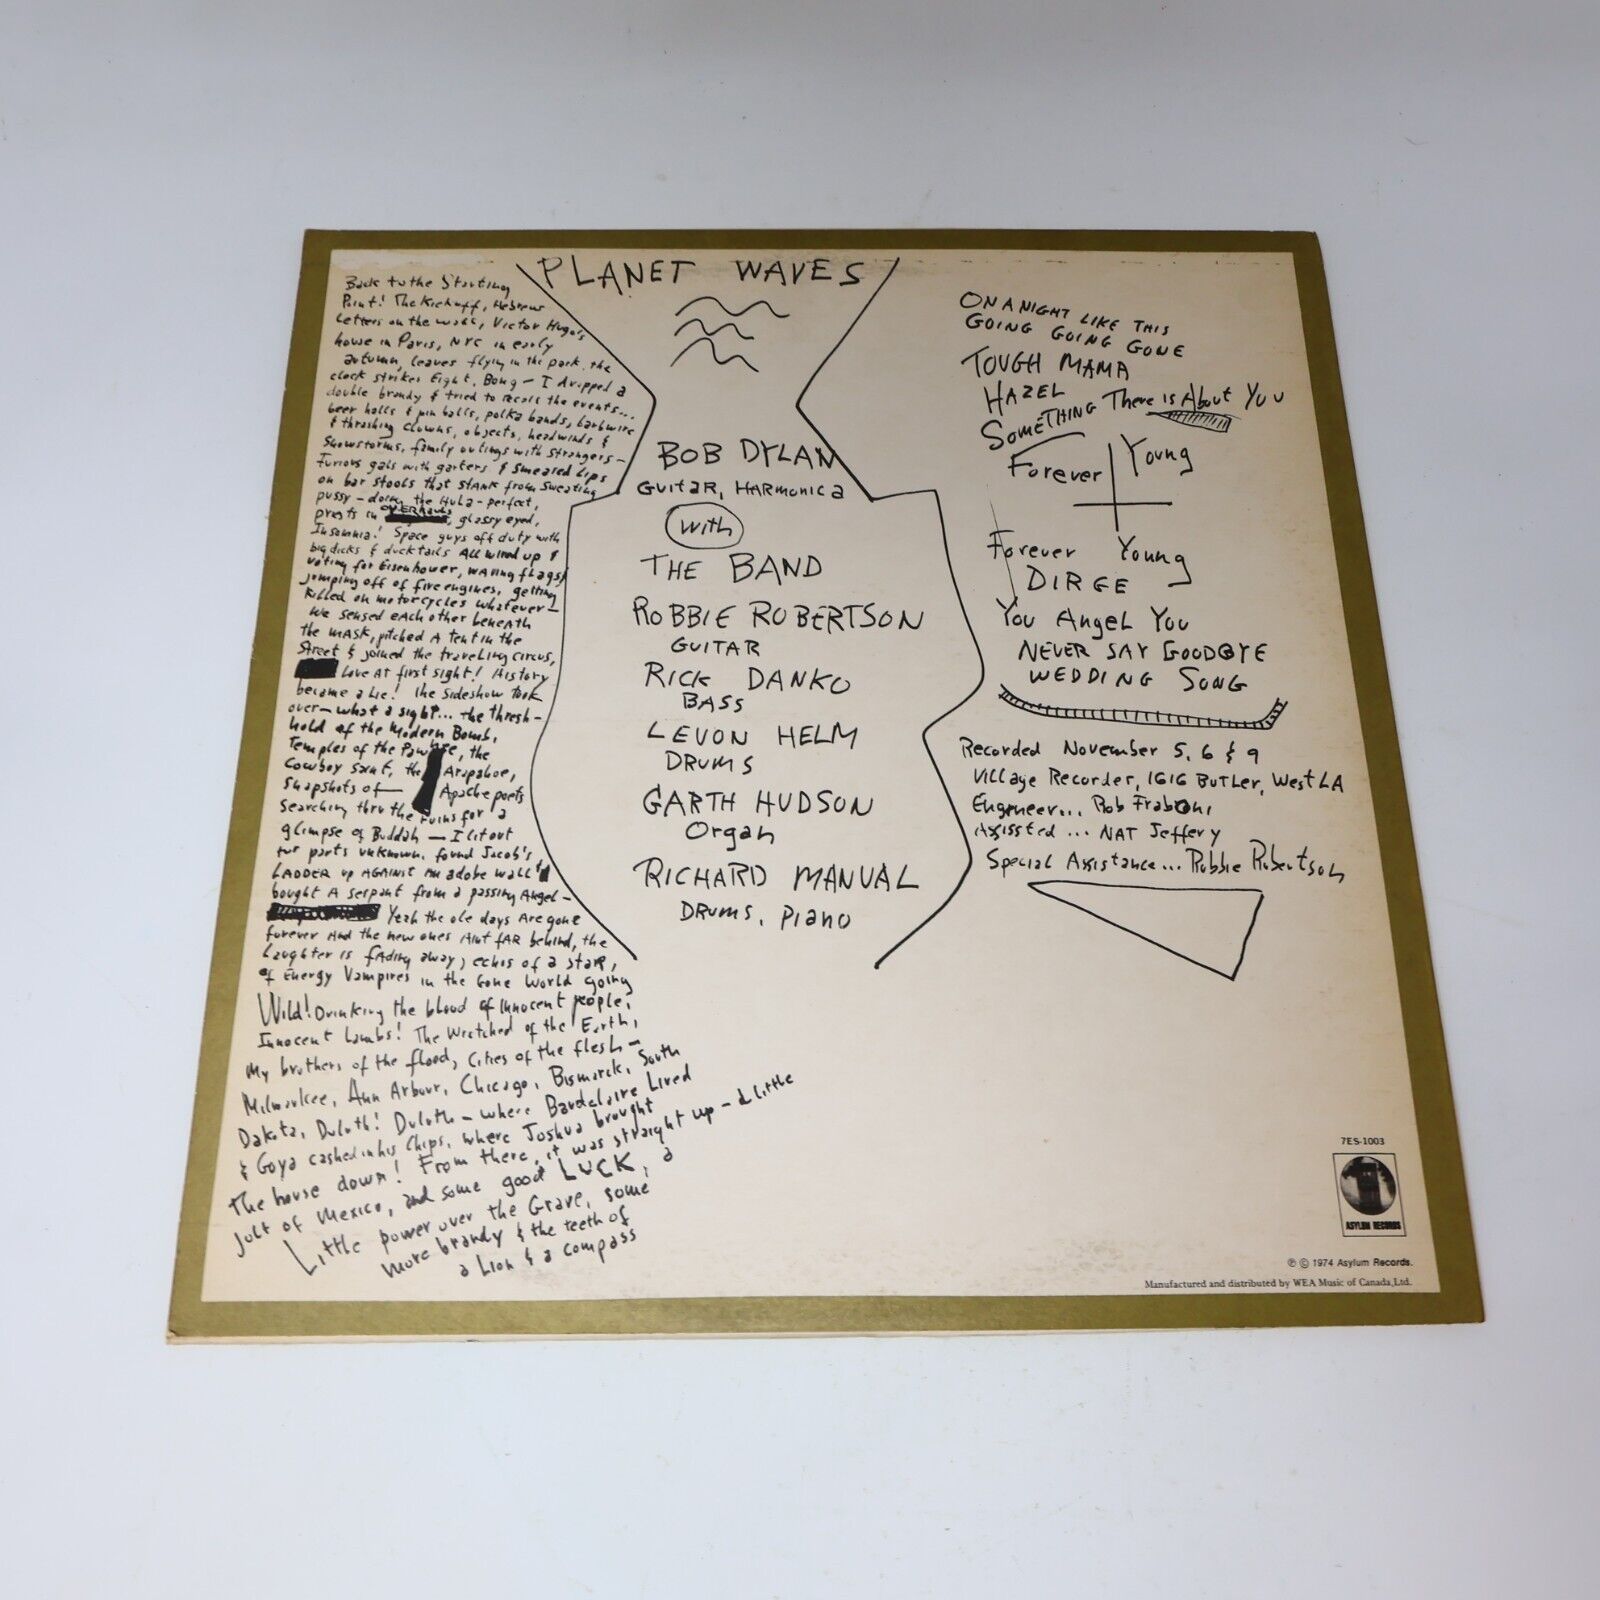 PLANET WAVES
Back to the Starting
Point! The Kickoff, Hebrew
Letters on the wall, Victor Hugo's
house in Paris, NYC in early
autumn, leaves flying in the park, the
clock strikes Eight, Bong — I dropped a
double brandy & tried to recall the events...
beer halls & pin balls, polka bands, barbwire
& thrashing clowns, objects, headwinds &
Snowstorms, family outings with strangers —
Furious gals with garters & smeared Lips
on bar stools that stank from sweating
pussy — doing the Hula — perfect,
prests in OVERHAULS, glassy eyed,
Insomnia! Space guys off duty with
big dicks & ducktails All wired up &
voting for Eisenhower, waving flags &
jumping off of fire engines, getting
Killed on motorcycles whatever —
We sensed each other beneath
the mask, pitched A tent in the
Street & joined the traveling circus,
Love At first sight! History
became a Lie! the sideshow took
over — what a sight... the thresh-
hold of the Modern Bomb,
Temples of the Pawnee, the
Cowboy saint, the Arapahoe,
snapshots of — Apache poets
searching thru the ruins for a
glimpse of Buddah — I lit out
for parts unknown, found Jacob's
LADDER up AGAINST an adobe wall &
bought A serpant from a passing Angel —
Yeah the ole days Are gone
forever And the new ones Aint fAR behind, the
Laughter is fAding away, echos of a staR,
of Energy Vampires in the Gone World going
Wild! Drinking the blood of Innocent people,
Innocent Lambs! The Wretched of the Earth,
My brothers of the flood, Cities of the flesh —
Milwaukee, Ann Arbour, Chicago, Bismarck, South
Dakota, Duluth! Duluth — where Baudelaire Lived
& Goya cashed in his Chips, where Joshua brought
The house down! From there, it was straight up — a little
jolt of Mexico, and some good LUCK, a
Little power over the Grave, some
more brandy & the teeth of
a Lion & a compass
BOB DYLAN
GUITAR, HARMONICA
with
THE BAND
ROBBIE ROBERTSON
GUITAR
RICK DANKO
BASS
LEVON HELM
DRUMS
GARTH HUDSON
Organ
RICHARD MANUAL
DRUMS, PIANO
ON A NIGHT LIKE THIS
GOING GOING GONE
TOUGH MAMA
HAZEL
SOMETHING There is About You
Forever Young
Forever Young
DIRGE
You Angel You
NEVER SAY GOODBYE
WEDDING SONG
Recorded November 5, 6 & 9
Village Recorder, 1616 BUTLER, West LA
Engineer... Rob Fraboni
Assissted ... NAT Jeffery
Special Assistance... Robbie Robertson
7ES-1003
ASYLUM RECORDS
℗ © 1974 Asylum Records.
Manufactured and distributed by WEA Music of Canada, Ltd.